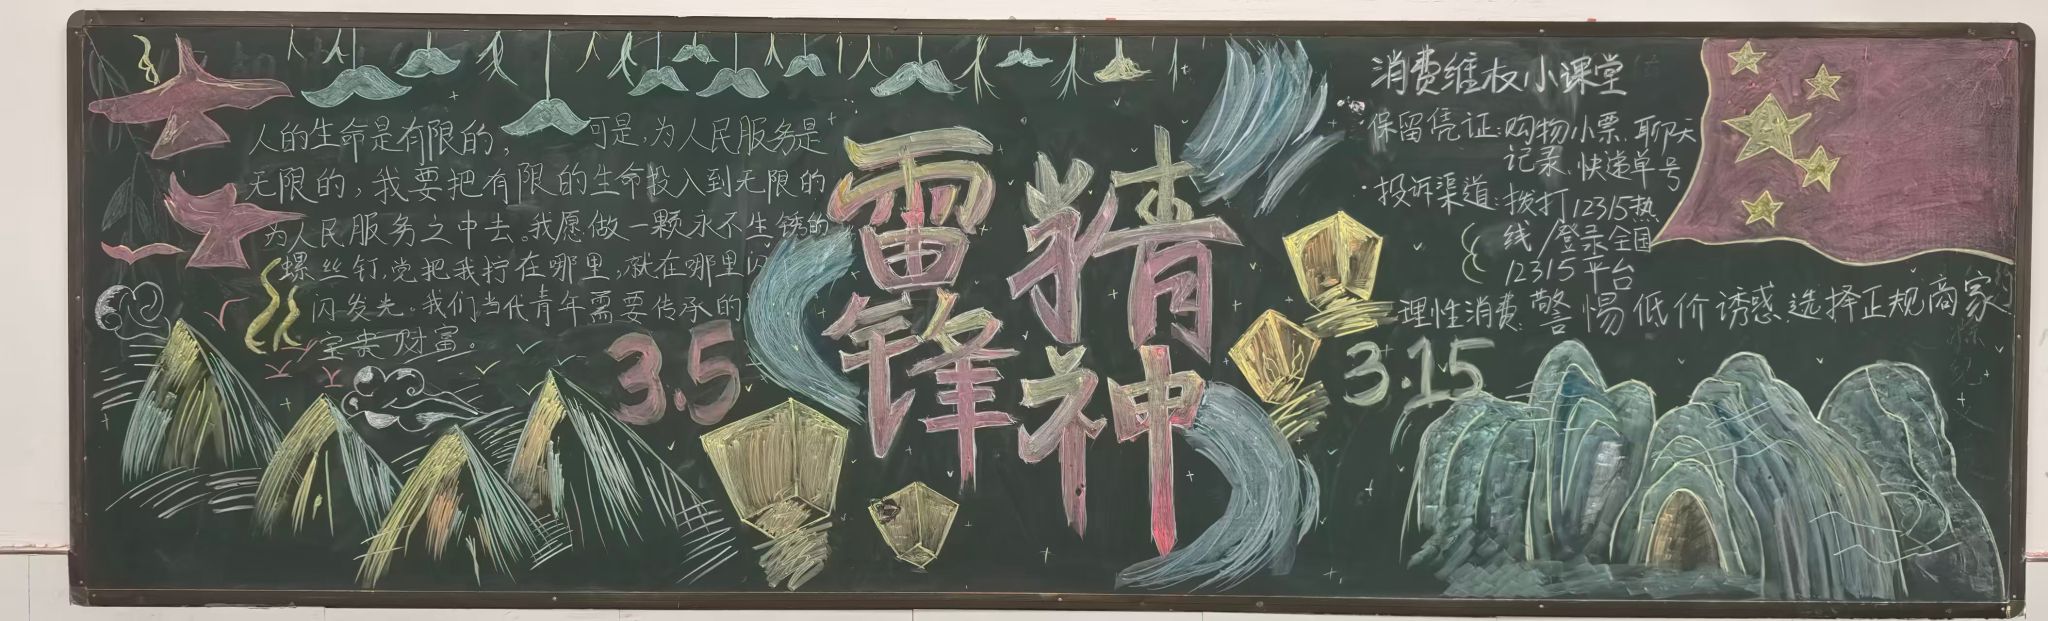 人的生命是有限的, 可是,为人民服务是
无限的,我要把有限的生命投入到无限的
为人民服务之中去。我愿做一颗永不生锈的
螺丝钉,党把我拧在哪里,就在哪里闪
闪发光。我们当代青年需要传承的
宝贵财富。
3.5
雷锋
精神
消费维权小课堂
·保留凭证:购物小票,聊天
记录,快递单号
·投诉渠道:拨打12315热
线/登录全国
12315平台
理性消费,警惕低价诱惑,选择正规商家
3.15